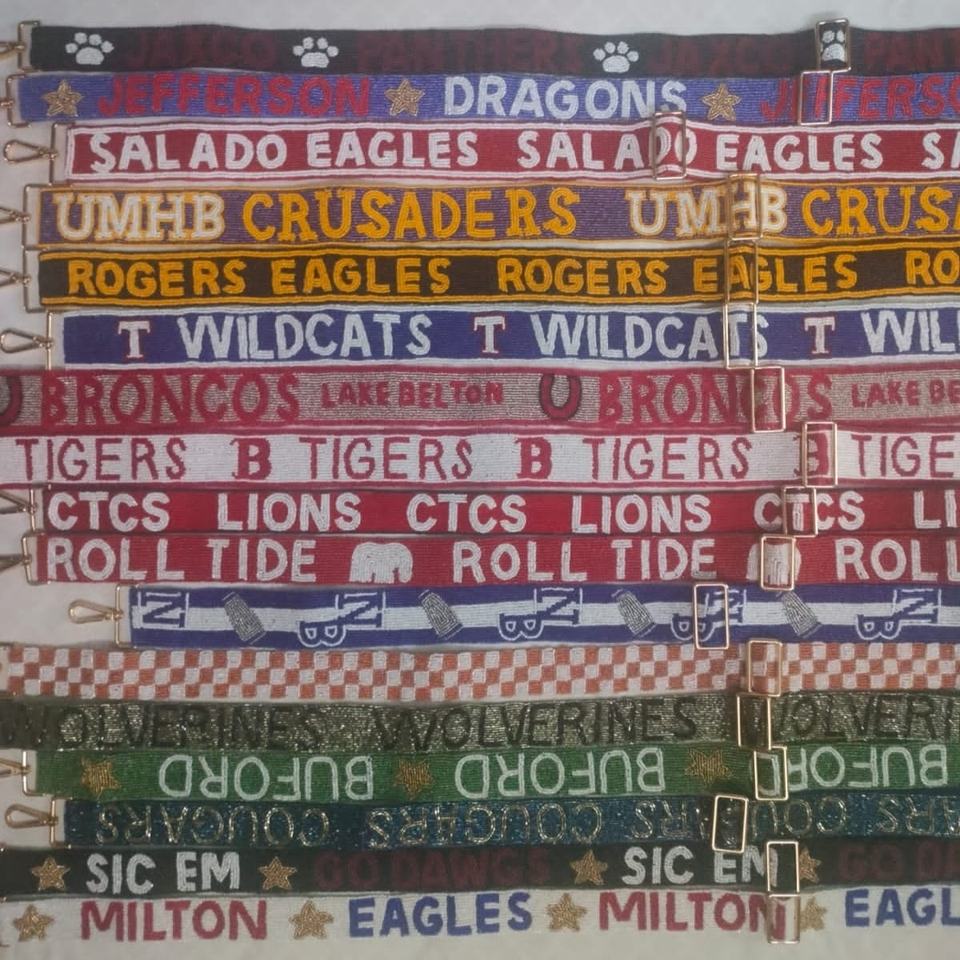 JAXCO PANTHERS JAXCO PANT
JEFFERSON DRAGONS JEFFERSO
SALADO EAGLES SALADO EAGLES SA
UMHB CRUSADERS UMHB CRUSA
ROGERS EAGLES ROGERS EAGLES RO
T WILDCATS T WILDCATS T WIL
BRONCOS LAKE BELTON BRONCOS LAKE BE
TIGERS B TIGERS B TIGERS B TIGE
CTCS LIONS CTCS LIONS CTCS LI
ROLL TIDE ROLL TIDE ROLL
NB NB NB NB NB
WOLVERINES WOLVERINES WOLVERIN
BUFORD BUFORD BUFORD
COUGARS COUGARS COUGARS COUGARS
SIC EM GO DAWGS SIC EM GO DA
MILTON EAGLES MILTON EAGL